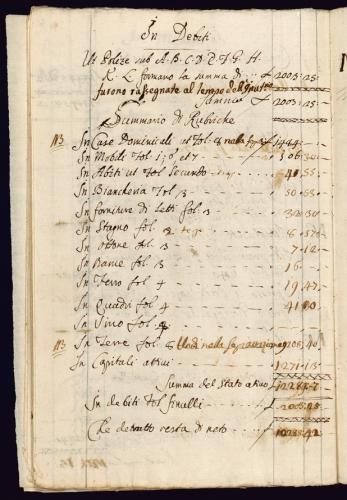 In Debiti
Ut Polize sub A. B. C. D. E. F. G. H.
K. L. formano la summa di f 2003.25
furono rassegnate al tempo dell'
Summa 2003.25
Summario di Rubriche
113 In Case Dominicali ut fol. 8 1444
In Mobili fol. 506
In Abiti ut fol. secundo 41.55
In Biancheria fol. 3 50.53
In forniture di letti fol. 3 32.30
In Stagno fol. 3 8
In ottone fol. 3 7.12
In Rame fol. 3 16
In Ferro fol. 4 19.47
In Quadri fol. 4
In Vino fol.
113 In Terre fol. 8
In Capitali attivi 1271.13
Summa del Stato attivo 12287.7
In debiti fol. 2003.25
Che detratto resta di neto 10283.42